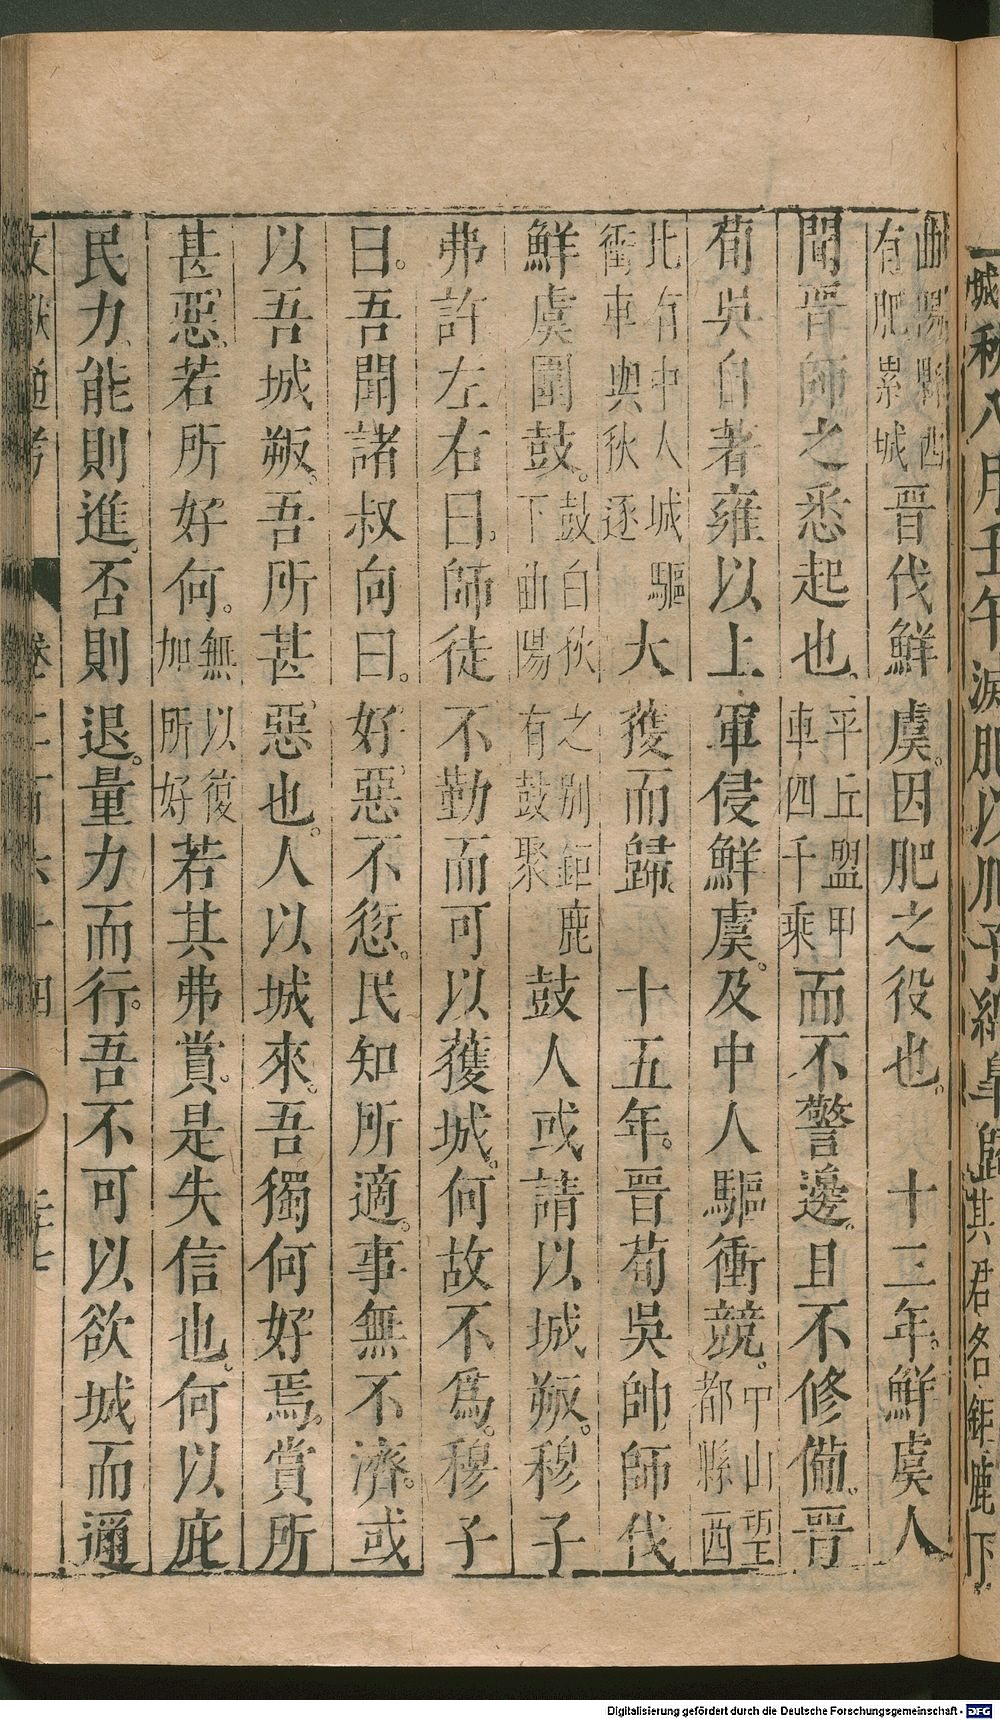 城秋八月壬午滅肥以肥子緜皐歸其君名鉅鹿下
曲陽縣西有肥累城晉伐鮮虞。因肥之役也。十三年。鮮虞人
聞晉師之悉起也。平丘盟甲車四千乘而不警邊。且不修備。晉
荀吳自著雍以上軍侵鮮虞。及中人驅衝競。中山望都縣西
北有中人城驅衝車與狄逐大獲而歸。十五年。晉荀吳帥師伐
鮮虞圍鼓。鼓白狄之別鉅鹿下曲陽有鼓聚鼓人或請以城叛。穆子
弗許左右曰。師徒不勤而可以獲城。何故不爲。穆子
曰。吾聞諸叔向曰。好惡不愆。民知所適。事無不濟。或
以吾城叛。吾所甚惡也。人以城來。吾獨何好焉。賞所
甚惡若所好何。無以復加所好若其弗賞。是失信也。何以庇
民力能則進。否則退。量力而行。吾不可以欲城而邇
文獻通考 卷二百六十四 三十七
Digitalisierung gefördert durch die Deutsche Forschungsgemeinschaft - DFG